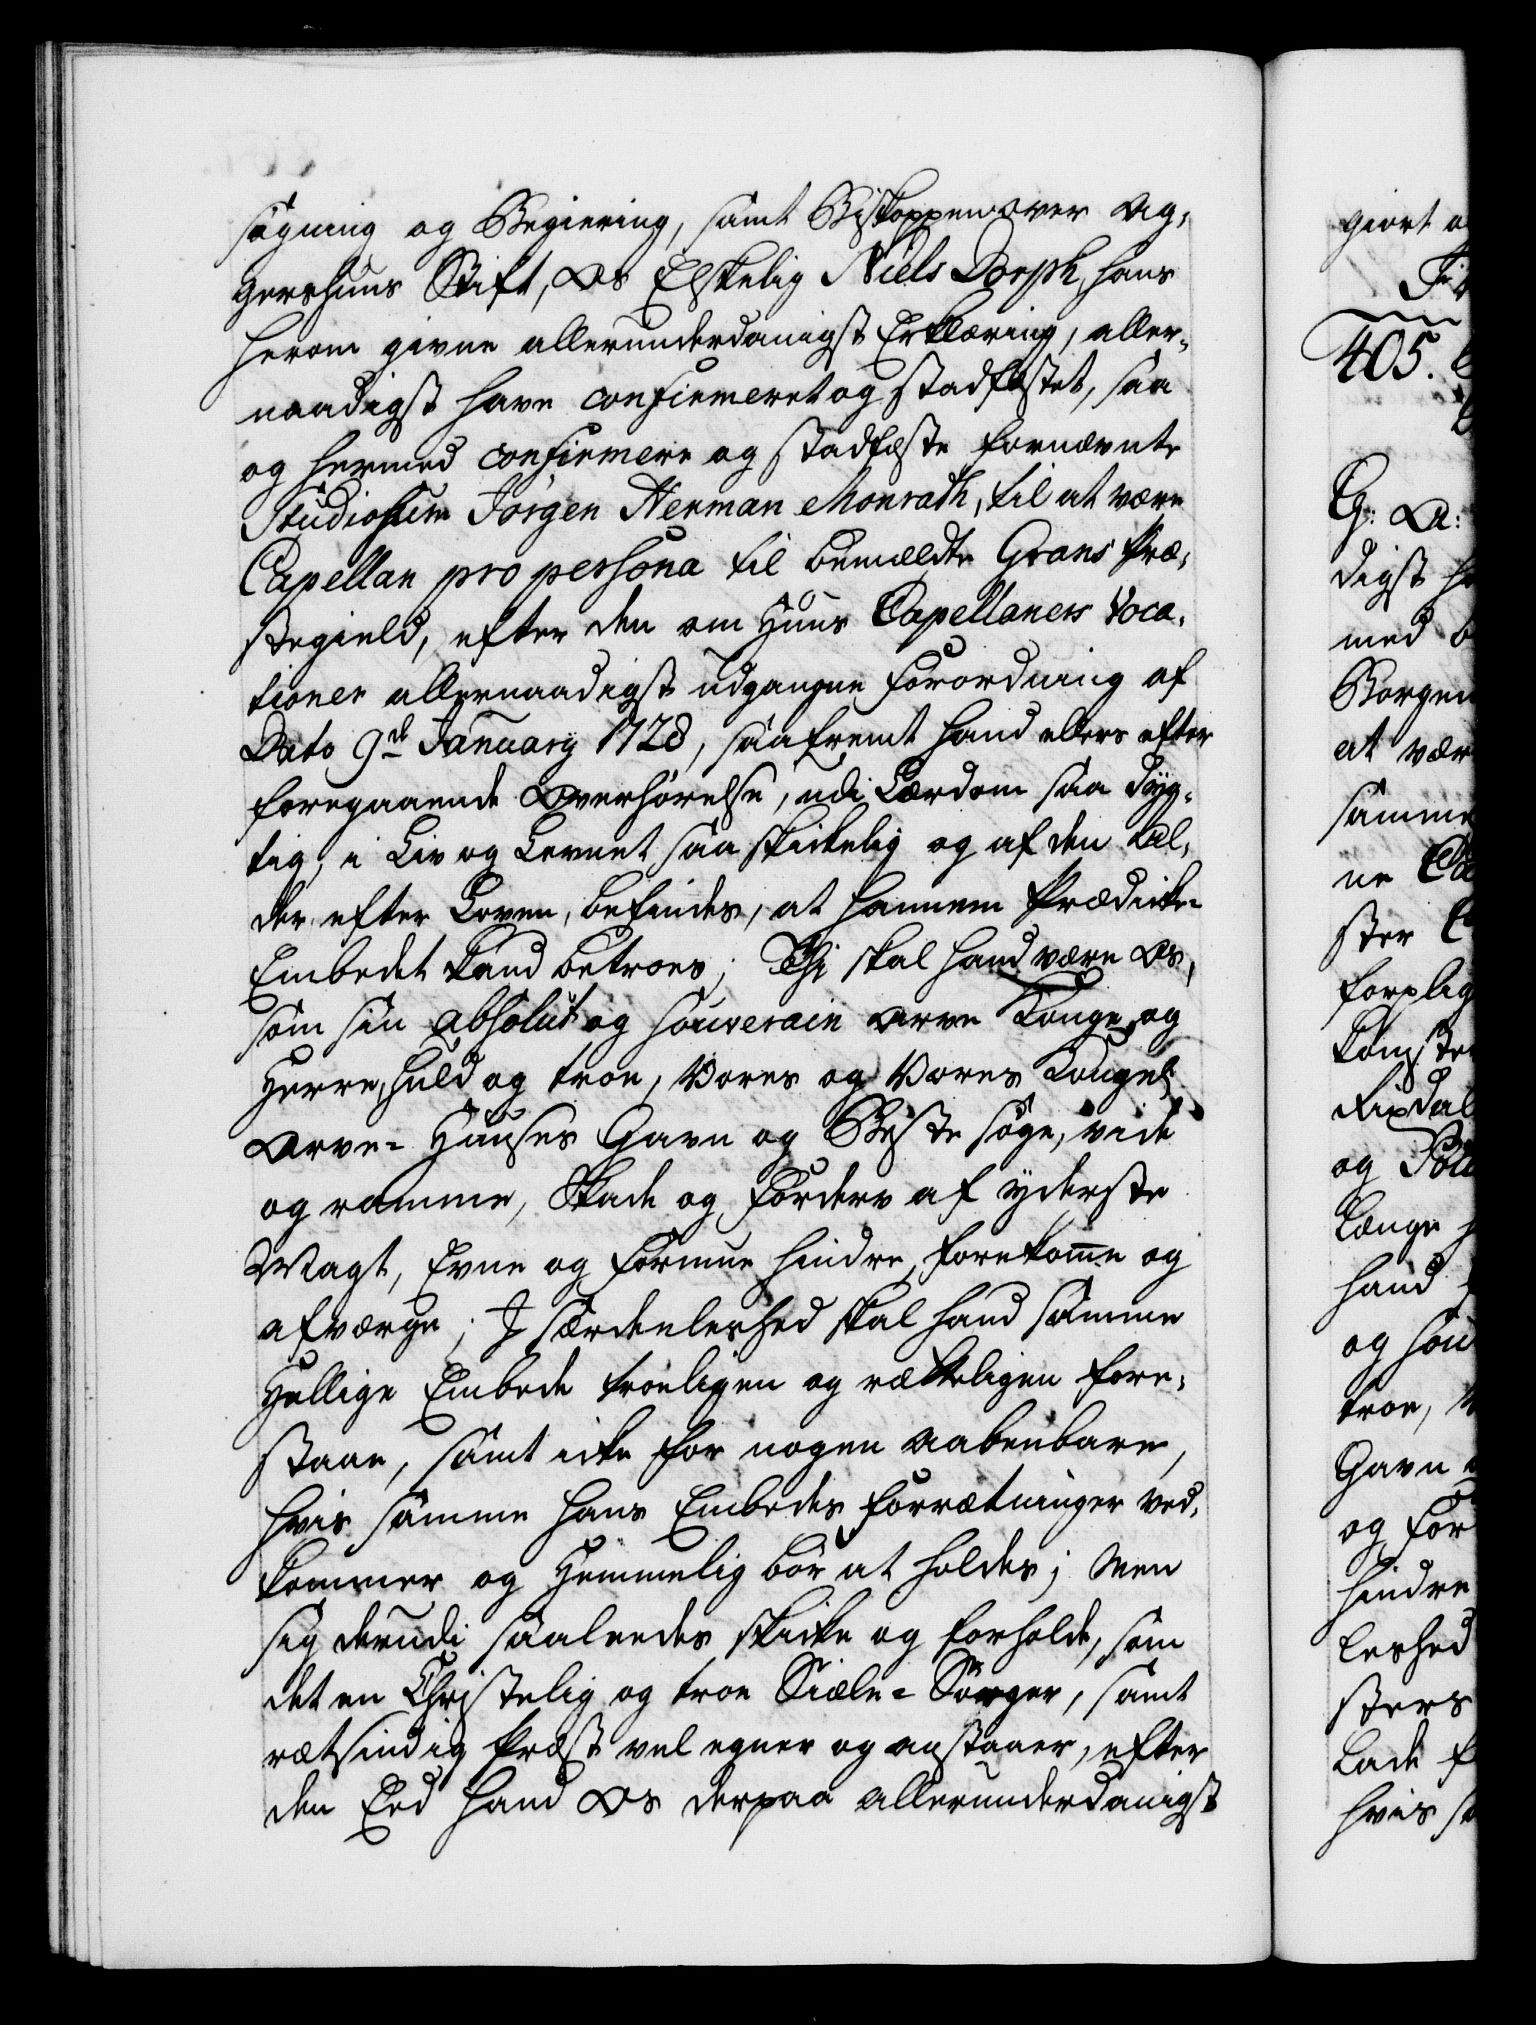 søgning og Begiering, samt Biskoppen over Ag-
gershuus Stift, Os Elskelig Niels Dorph, hans
herom givne allerunderdanigst Erklæring, aller-
naadigst have confirmeret og stadfæstet, saa
og hermed confirmere og stadfæste fornævnte
Studiosum Jørgen Herman Monrath, til at være
Capellan pro persona til bemældte Grans Præ-
stegield, efter den om Huus Capellaners Voca-
tioner allernaadigst udgangne Forordning af
Dato 9de January 1728, saafremt hand ellers efter
foregaaende Overhørelse, udi Lærdom saa dyg-
tig, i Liv og Levnet saa skickelig og af den Al-
der efter Loven, befindes, at hannem Prædicke-
Embedet kand betroes; Thj skal hand være Os,
som sin absolut og souverain Arve Konge og
Herre, huld og troe, Vores og Vores Kongel:
Arve-Huuses Gavn og Beste søge, vide
og ramme, Skade og Forderv af yderste
Magt, Evne og Formue hindre, forekomme og
afværge; J særdeeleshed skal hand samme
Hellige Embede troeligen og rætteligen fore-
staae, samt icke for nogen aabenbare,
hvis samme hans Embedes Forrætninger ved-
kommer og Hemmelig bør at holdes; Men
sig derudi saaleedes skicke og forholde, som
det en Christelig og troe Siæle-Sørger, samt
rætsindig Præst vel egner og anstaaer, efter
den Eed hand Os derpaa allerunderdanigst
giort
405.
G: A:
digst
med
Borgen
at vær
samme
ne
ster
forplig
komster
Rixdal
og
længe
hand
og sou
troe,
Gavn
og For
hindre
leshed
sters
lade
hvis